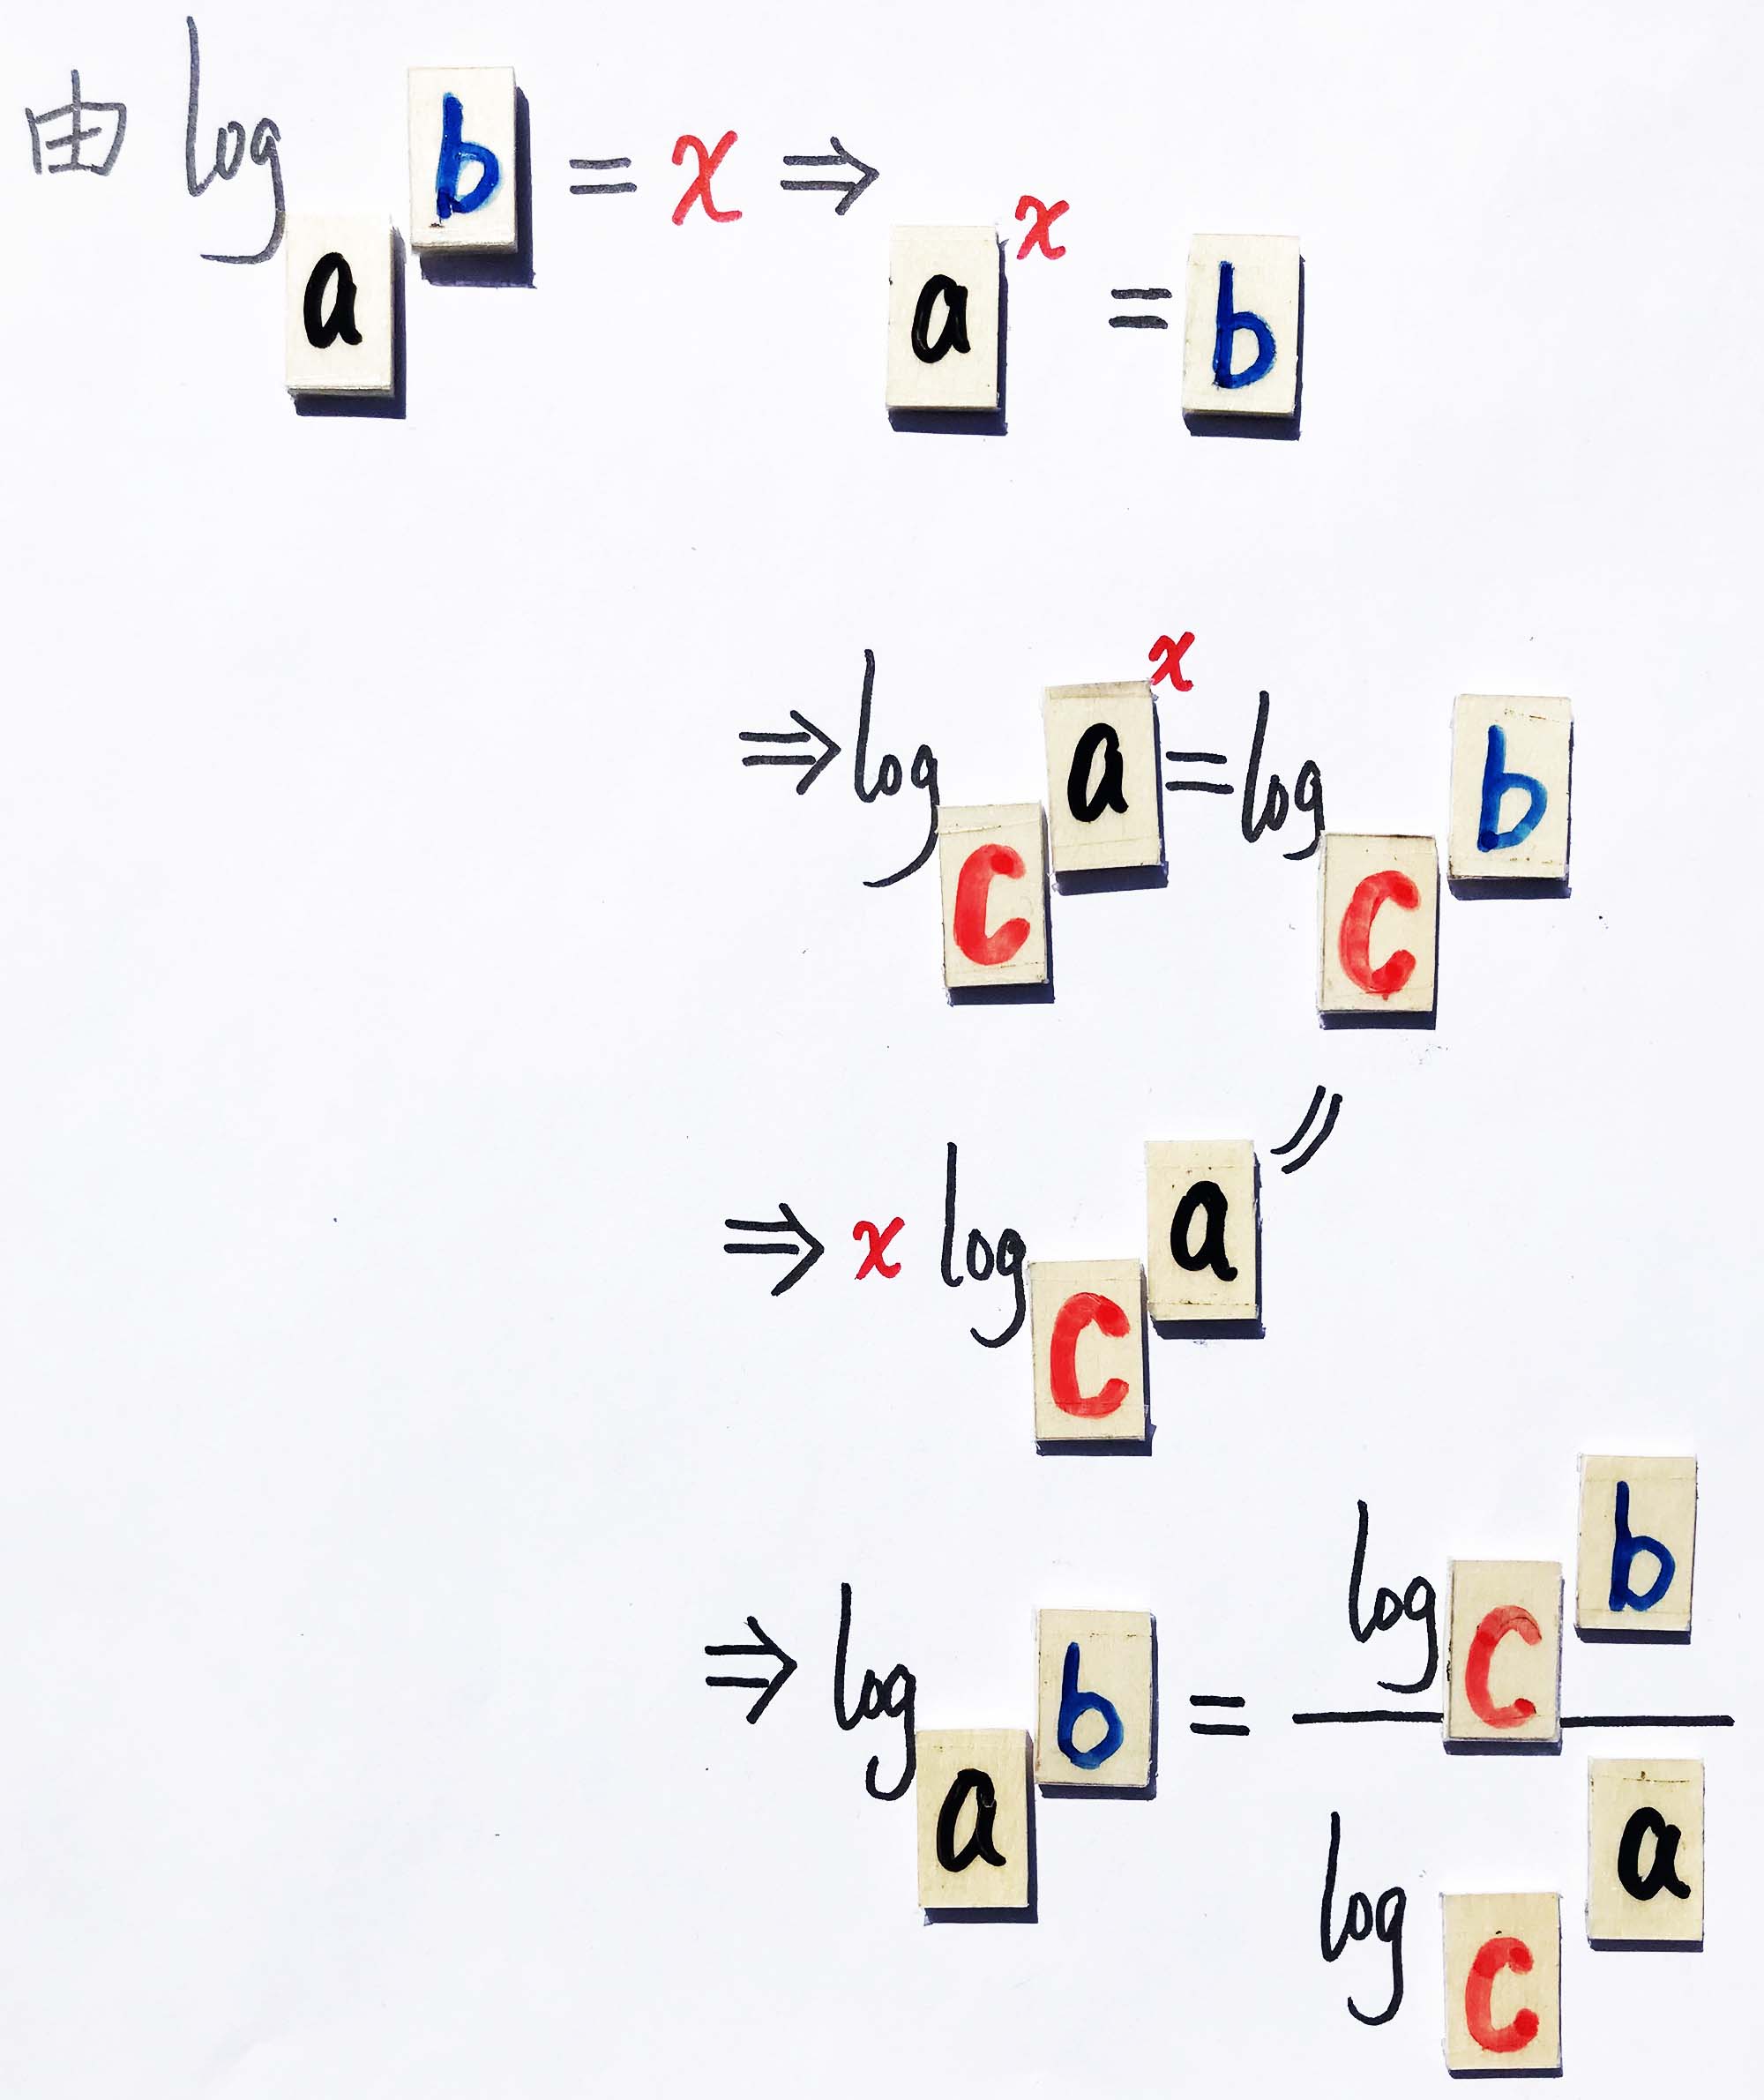 由 log_a b = x ⇒ a^x = b
⇒ log_c a^x = log_c b
⇒ x log_c a 〃
⇒ log_a b = log_c b / log_c a